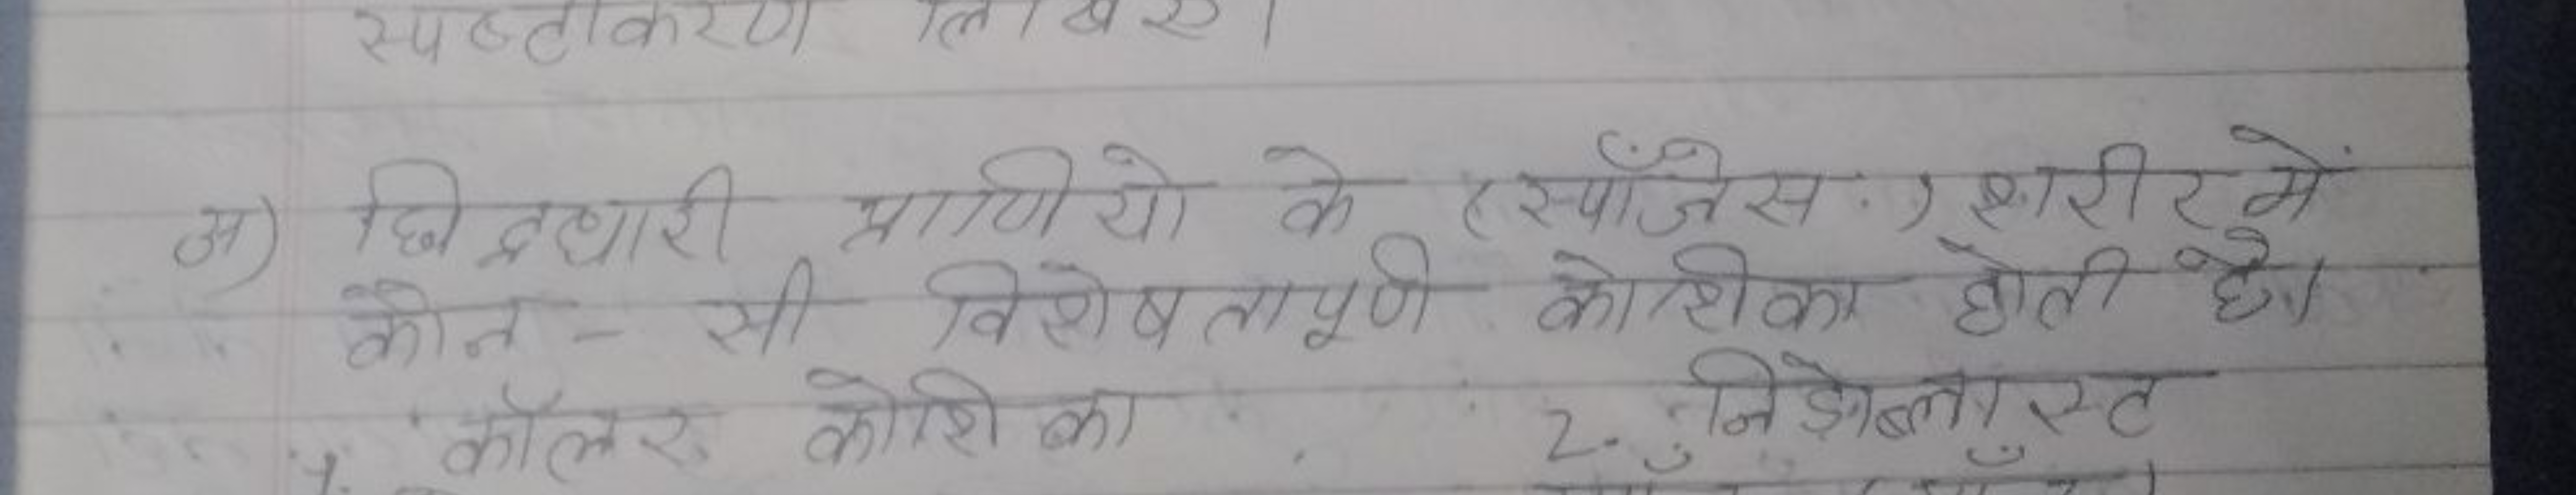 स्पष्टीकरण लिखिए।
अ) छिद्रधारी प्राणियो के (स्पॉंजेस.) शरीर में
कौन - सी विशेषतापूर्ण कोशिका होती है।
1. कॉलर कोशिका 2. निडोब्लास्ट